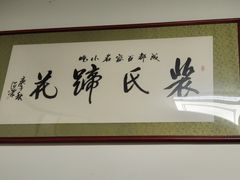 成都百家名小吃
裴氏蹄花